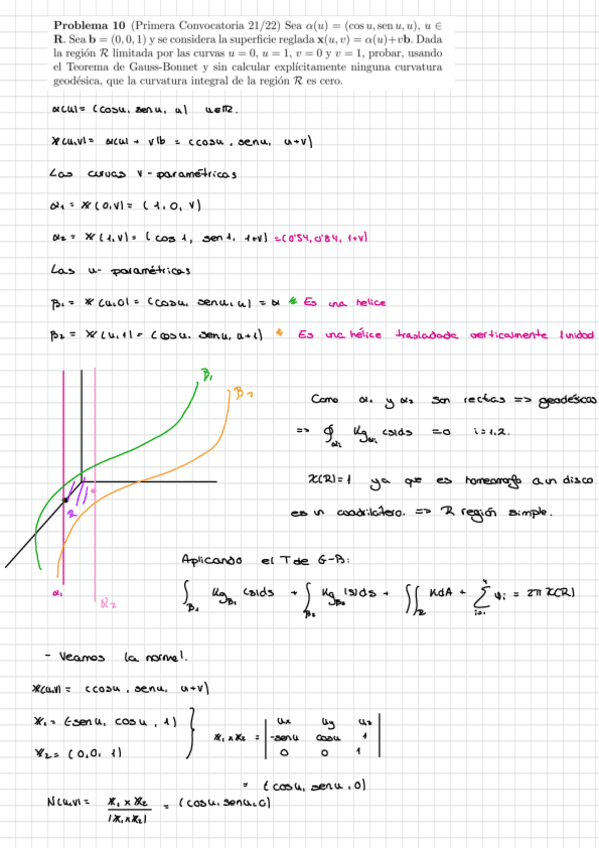 Problema 10 (Primera Convocatoria 21/22) Sea α(u) = (cos u, sen u, u), u ∈
R. Sea b = (0, 0, 1) y se considera la superficie reglada x(u, v) = α(u)+vb. Dada
la región R limitada por las curvas u = 0, u = 1, v = 0 y v = 1, probar, usando
el Teorema de Gauss-Bonnet y sin calcular explícitamente ninguna curvatura
geodésica, que la curvatura integral de la región R es cero.
α(u) = (cosu, senu, u) u∈R.
x(u,v) = α(u) + vb = (cosu, senu, u+v)
Las curvas v-paramétricas
α₁ = x(0,v) = (1, 0, v)
α₂ = x(1,v) = (cos 1, sen 1, 1+v) = (0'54, 0'84, 1+v)
Las u-paramétricas
β₁ = x(u,0) = (cosu, senu, u) = α * Es una hélice
β₂ = x(u,1) = (cosu, senu, u+1) * Es una hélice trasladada verticalmente 1 unidad
β₁
β₂
R
α₁
α₂
Como α₁ y α₂ son rectas => geodésicas
=> ∮αᵢ Kgαᵢ(s)ds = 0 i=1,2.
χ(R)=1 ya que es homeomorfo a un disco
es un cuadrilátero. => R región simple.
Aplicando el T de G-B:
∫β₁ Kgβ₁(s)ds + ∫β₂ Kgβ₂(s)ds + ∬R KdA + Σ⁴ᵢ₌₁ φᵢ = 2π χ(R)
- Veamos la normal.
x(u,v) = (cosu, senu, u+v)
x₁ = (-senu, cosu, 1)
x₂ = (0,0,1)
x₁ × x₂ = | ux uy uz |
| -senu cosu 1 |
| 0 0 1 |
= (cosu, senu, 0)
N(u,v) = x₁ × x₂ / |x₁ × x₂| = (cosu, senu, 0)